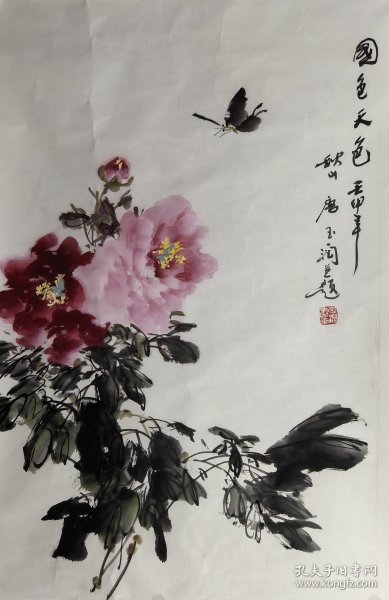 國色天色 壬申年
秋山 唐玉润并题
孔夫子旧书网
www.kongfz.com